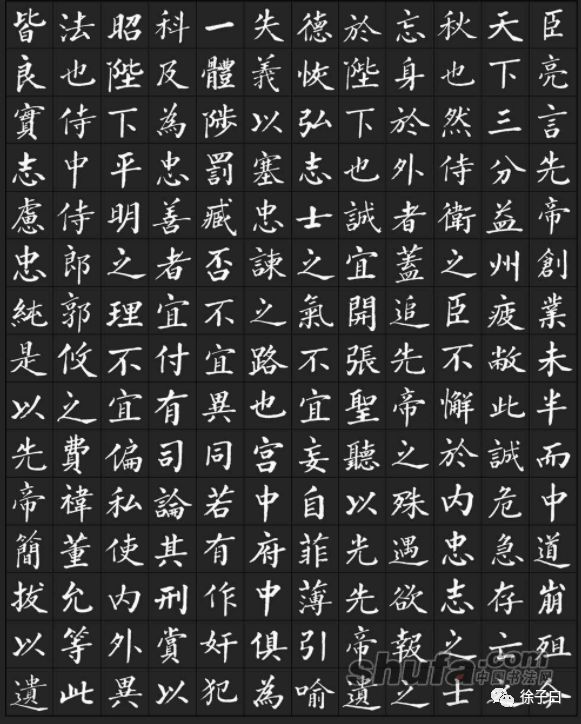 臣亮言先帝創業未半而中道崩殂
天下三分益州疲敝此誠危急存亡
秋也然侍衛之臣不懈於內忠志之士
忘身於外者蓋追先帝之殊遇欲報之
於陛下也誠宜開張聖聽以光先帝遺
德恢弘志士之氣不宜妄自菲薄引喻
失義以塞忠諫之路也宫中府中俱為
一體陟罰臧否不宜異同若有作奸犯
科及為忠善者宜付有司論其刑賞以
昭陛下平明之理不宜偏私使內外異
法也侍中侍郎郭攸之費禕董允等此
皆良實志慮忠純是以先帝簡拔以遺
shufa.com
中国书法网
徐子曰